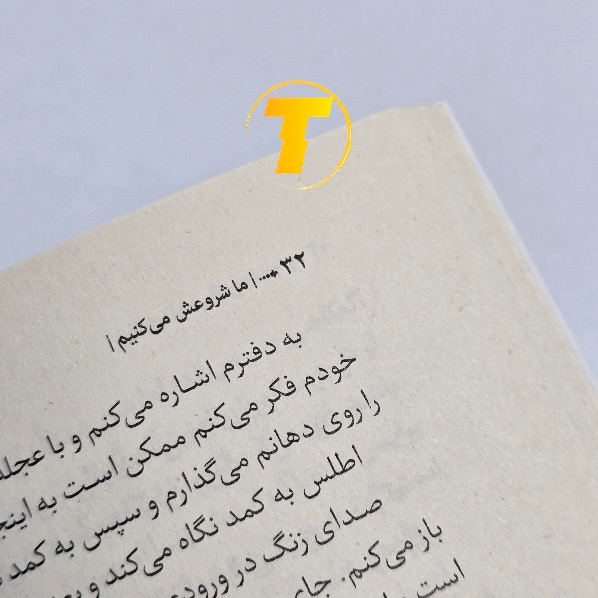 T
۳۲ ... | ما شروعش می‌کنیم |
به دفترم اشاره می‌کنم و با عجله
خودم فکر می‌کنم ممکن است به
را روی دهانم می‌گذارم و سپس به کمد
اطلس به کمد نگاه می‌کند و
صدای زنگ در ورودی
باز می‌کنم. جای
است